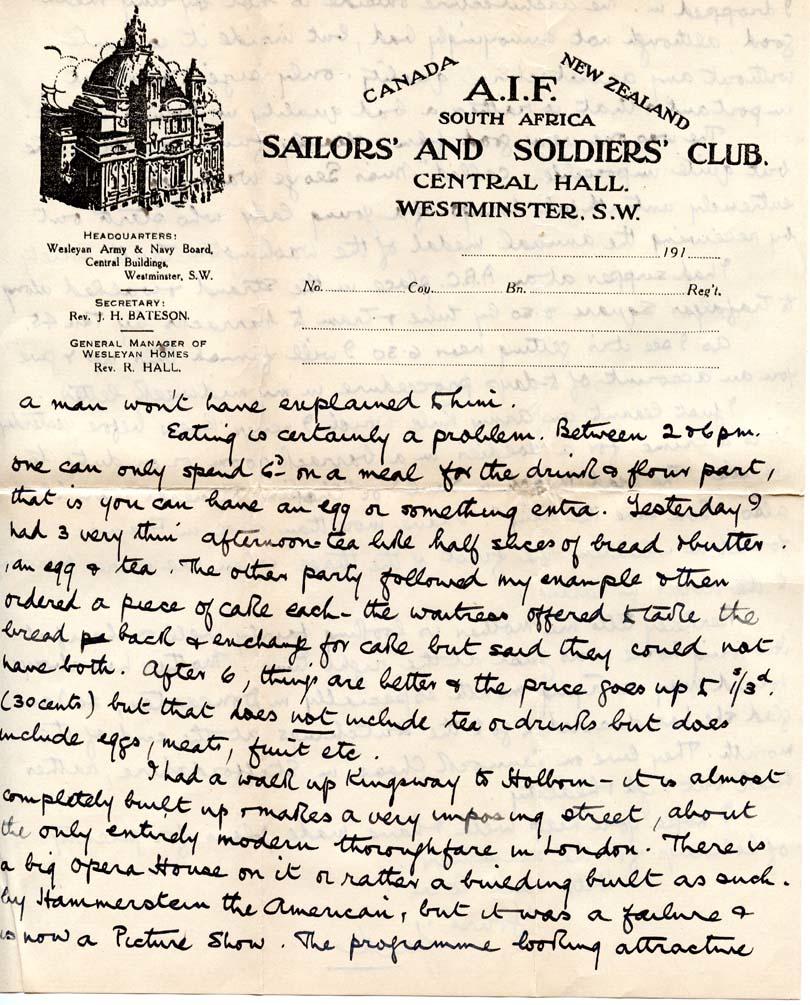 CANADA
NEW ZEALAND
A.I.F.
SOUTH AFRICA
SAILORS' AND SOLDIERS' CLUB.
CENTRAL HALL.
WESTMINSTER, S.W.
HEADQUARTERS:
Wesleyan Army & Navy Board,
Central Buildings,
Westminster, S.W.
SECRETARY:
Rev. J. H. BATESON.
GENERAL MANAGER OF
WESLEYAN HOMES
Rev. R. HALL.
191
No. Coy. Bn. Reg't.
a man won't have explained to him.
Eating is certainly a problem. Between 2 & 6 pm.
one can only spend 6d on a meal for the drink & flour part,
that is you can have an egg or something extra. Yesterday I
had 3 very thin afternoon-tea like half slices of bread & butter.
, an egg & tea. The other party followed my example & then
ordered a piece of cake each - the waitress offered to take the
bread back & exchange for cake but said they could not
have both. After 6, things are better & the price goes up to 1s/3d.
(30 cents) but that does not include tea or drinks but does
include eggs, meats, fruit etc.
I had a walk up Kingsway to Holborn - it is almost
completely built up & makes a very imposing street, about
the only entirely modern thoroughfare in London. There is
a big Opera House on it or rather a building built as such.
by Hammerstein the American, but it was a failure &
is now a Picture Show. The programme looking attractive